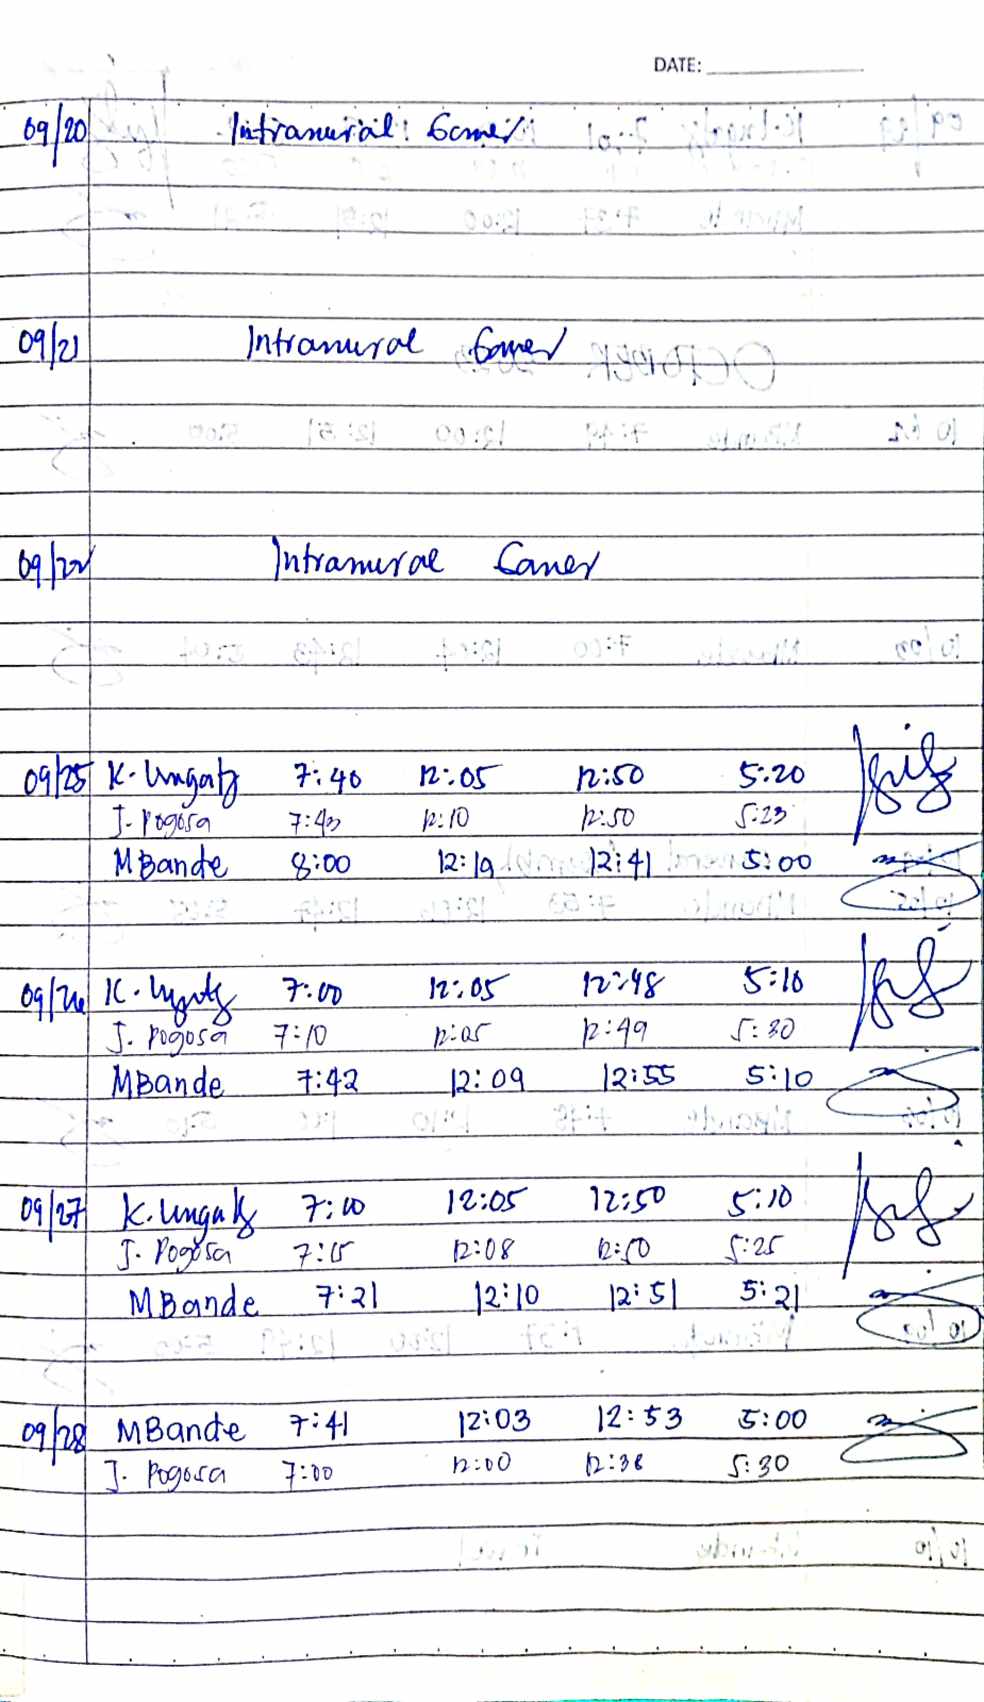 DATE:
09/20 Intramural Games
09/21 Intramural Games
09/22 Intramural Games
09/25 K. Ungatz 7:40 12:05 12:50 5:20
J. Pogosa 7:43 12:10 12:50 5:23
MBande 8:00 12:19 12:41 5:00
09/26 K. 7:00 12:05 12:48 5:10
J. Pogosa 7:10 12:05 12:49 5:30
MBande 7:42 12:09 12:55 5:10
09/27 K. 7:00 12:05 12:50 5:10
J. Pogosa 7:15 12:08 12:50 5:25
MBande 7:21 12:10 12:51 5:21
09/28 MBande 7:41 12:03 12:53 5:00
J. Pogosa 7:00 12:00 12:38 5:30